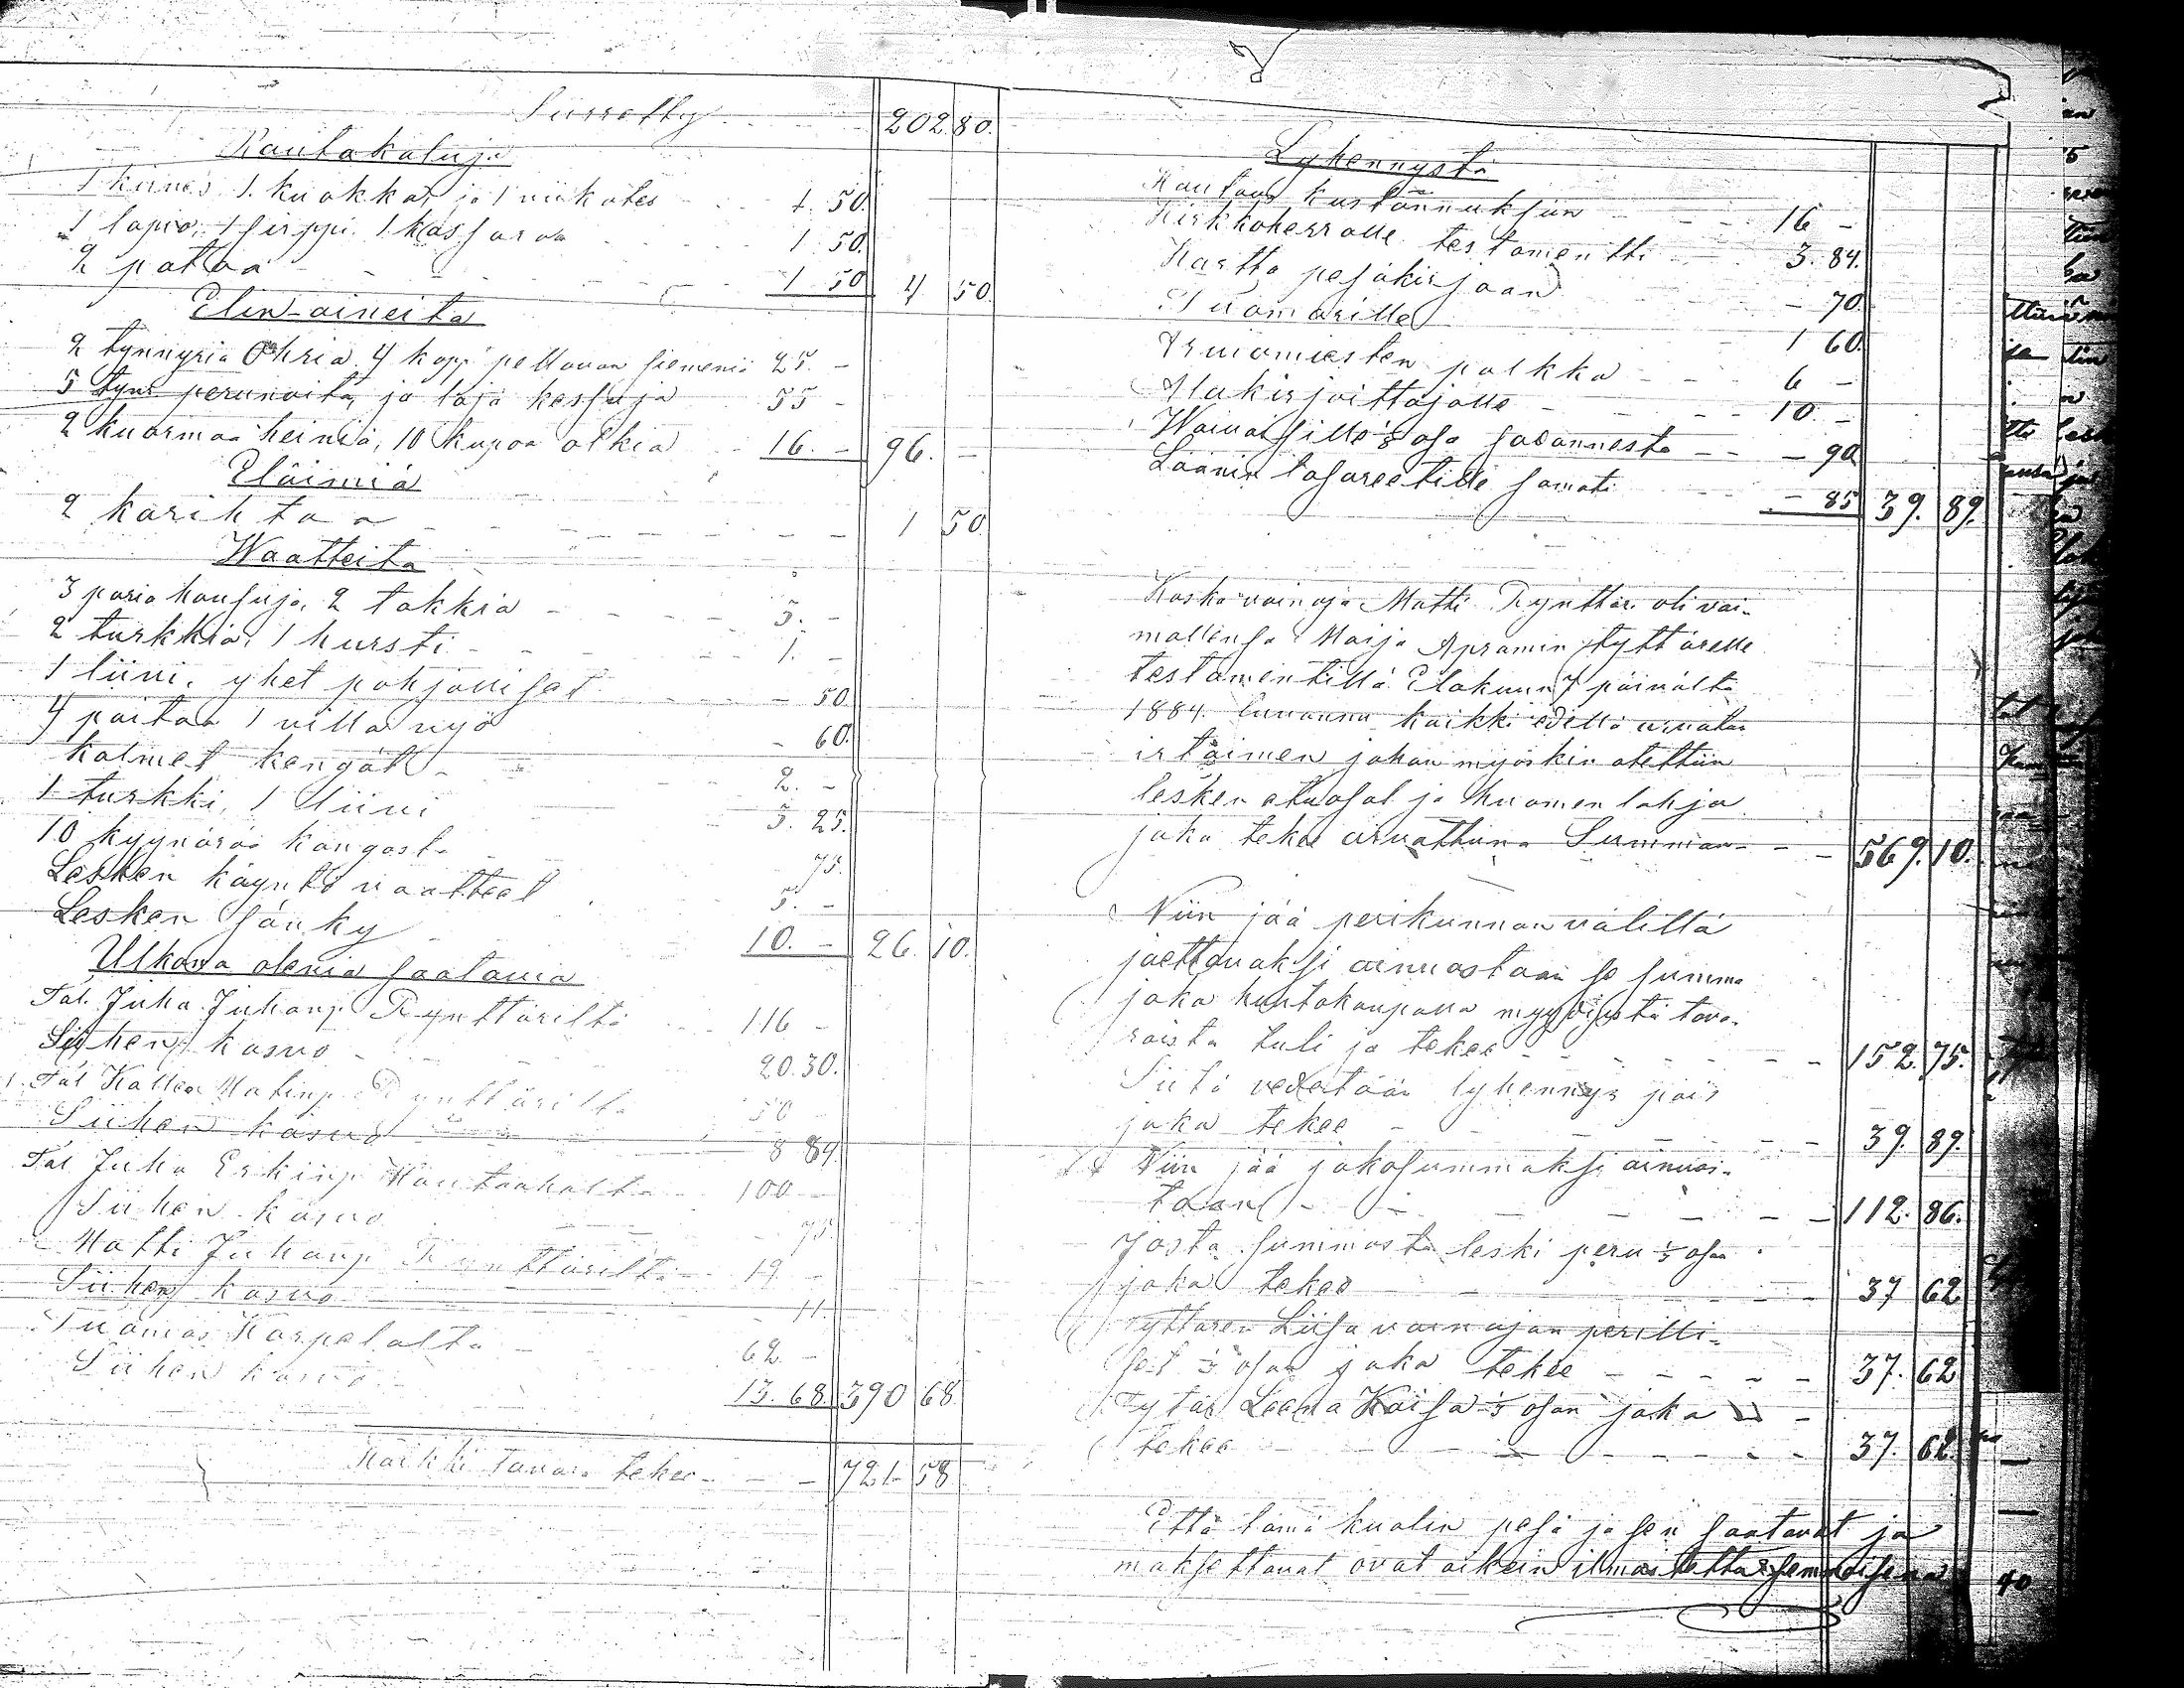 Siirretty 202 80.
Rautakaluja
1 kirves 1. kuokka, ja 1 viikates 1. 50.
1 lapio, 1 sirppi. 1 kassara 1 50.
2 pataa 1 50 4 50.
Elin-aineita
2 tynnyriä Ohria 4 kapp pellavan siemeniä 25. -
5 tynr perunoita, ja laja kessuja 55 -
2 kuormaa heiniä, 10 kupoa olkia 16. - 96. -
Eläimiä
2 karihtaa 1 50
Waatteita
3 paria housuja, 2 takkia 5. -
2 turkkia, 1 hursti 1. -
1 liivi, yhet pohjalliset - 50
4 paitaa 1 villa vyö - 60.
kolmet kengät 2. -
1 turkki, 1 liivi 3. 25.
10 kyynärää kangasta 75.
Lesken käynti vaatteet 5. -
Lesken sänky 10. - 26. 10.
Ulkona olevia saatavia
Tal. Juha Juhanp. Rynttäriltä 116 -
Siihen kasvo 20. 30.
Tal Kallea Matinp. Rynttäriltä 50
Siihen kasvo 8 84.
Tal Juha Erkinp. 100 -
Siihen kasvo - 75.
Matti Juhanp. Rynttäriltä 19 -
Siihen kasvo - 11.
Tuomas Karpelalta 62. -
Siihen kasvo 13. 68. 390 68.
Kaikki tavara tekee - - - 721 58
Lyhennystä
Hautaus kustannuksiin 16 -
Kirkkoherralle testamentti 3. 84.
Kartta pesäkirjaan - 70.
Tuomarille 1 60.
Arviomiesten palkka 6 -
Allakirjoittajalle 10 -
Waivaisille 1/8 osa sadannesta - 90
Läänin lasareetille samati - 85 39. 89.
Koska vainaja Matti Rynttäri oli vai-
mollensa Maija Apramin tyttärelle
testamentillä Elokuun 7 päivältä
1884. luvannu kaikki edellä arvatun
irtaimen johon myöskin otettiin
lesken etuosat ja huomen lahja
joka tekee arvattuna Summan - - 569. 10.
Niin jää perikunnan välillä
jaettavaksi ainuastaan se summa
joka huutokaupalla myydyistä tava-
roista tuli ja tekee - - 152. 75.
Siitä vedetään lyhennys pois
joka tekee - - 39. 89.
Niin jää jakosummaksi ainuas-
taan - - 112. 86.
Josta summasta leski peru 1/3 osan
joka tekee - - 37 62
Tyttären Liisa vainajan perilli-
set 1/3 osan joka tekee - - 37. 62
Tytär Leena Kaisa 1/3 osan joka
tekee - - 37. 62.
Että tämä kuolin pesä ja sen saatavat ja
maksettavat ovat oikein ilmoitettu semmoisena